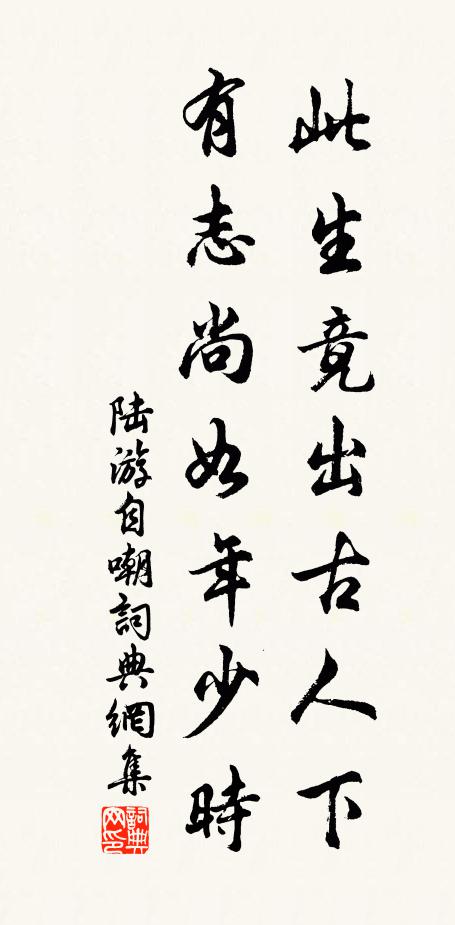 此生竟出古人下
有志尚如年少時
陆游自嘲詞典網集
詞典
网印